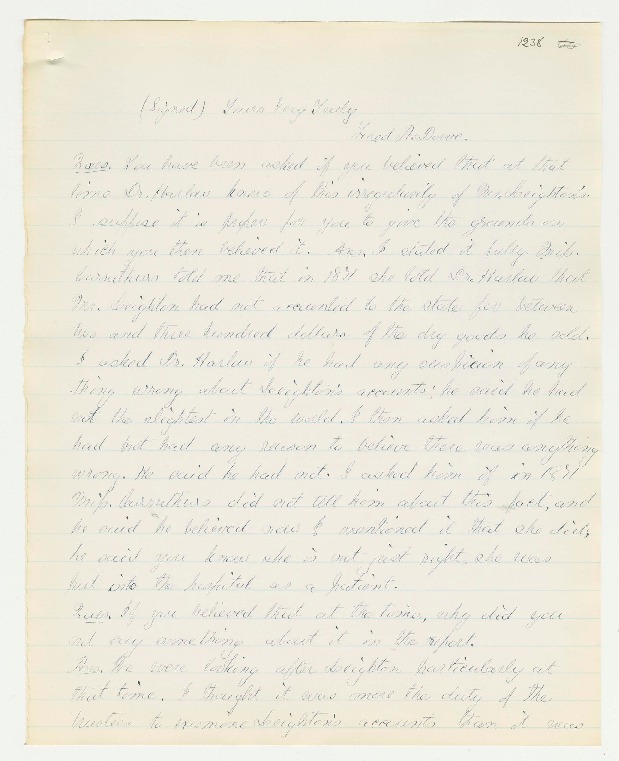 1238
(Signed) Yours Very Truly
Fred A. Dowe.
Ques. You have been asked if you believed that at that
time Dr. Harlow knew of this irregularity of Mr. Leighton's
I suppose it is proper for you to give the grounds on
which you then believed it. Ans. I stated it fully Miss.
Carruthers told me that in 1871 she told Dr. Harlow that
Mr. Leighton had not accounted to the state for between
two and three hundred dollars of the dry goods he sold.
I asked Dr. Harlow if he had any suspicion of any
thing wrong about Leighton's accounts; he said he had
not the slightest in the world. I then asked him if he
had not had any reason to believe there was anything
wrong. He said he had not. I asked him if in 1871
Miss. Carruthers did not tell him about this fact, and
he said he believed now I mentioned it that she did;
he said you know she is not just right, she was
put into the hospital as a patient.
Ques. If you believed that at the time, why did you
not say something about it in the report.
Ans. We were looking after Leighton particularly at
that time. I thought it was more the duty of the
trustees to examine Leighton's accounts than it was